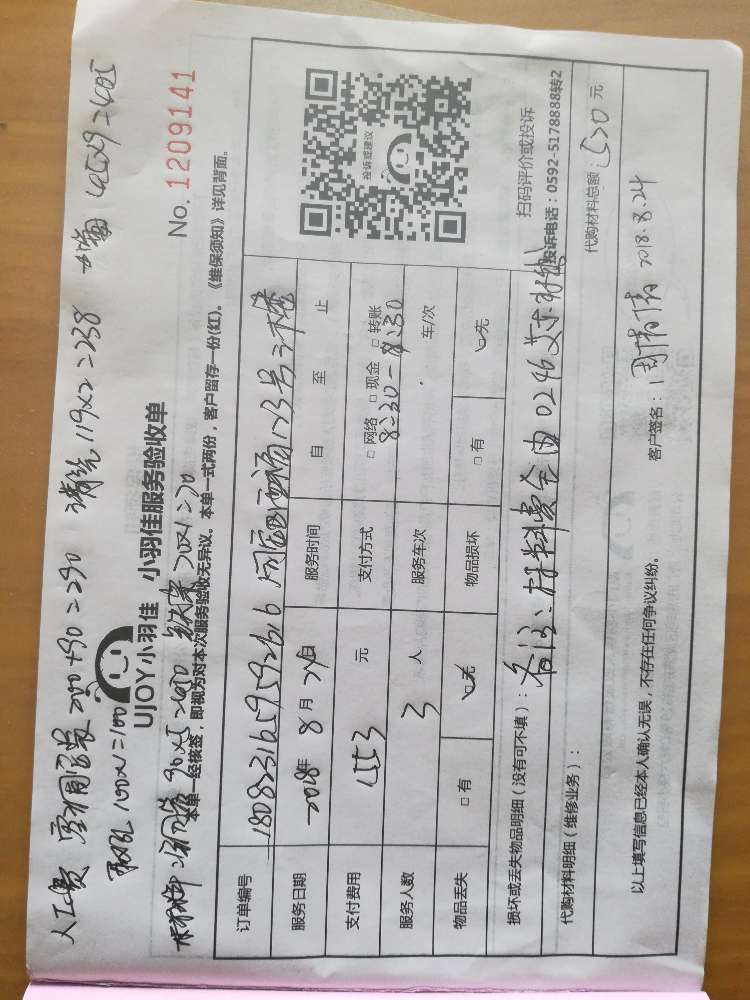 人工费 空调安装 200+90=290 清洗 119×2=238 45×9=405
100×1=100
铜管 90×5=450 70×1=70
UJOY小羽佳 小羽佳服务验收单
No. 1209141
本单一经核签，即视为对本次服务验收无异议。本单一式两份，客户留存一份(红)。《维保须知》详见背面。
订单编号
服务日期 2018年 8月24日 服务时间 自 至 止
支付费用 1553 元 支付方式 □ 网络 □ 现金 □ 转账
服务人数 3 人 服务车次 8:30-9:30 车/次
物品丢失 □ 有 □无 物品损坏 □ 有 □无
投诉或建议
扫码评价或投诉
投诉电话：0592-5178888转2
损坏或丢失物品明细（没有可不填）：
备注：材料费全由0246
代购材料明细（维修业务）： 代购材料总额：520 元
以上填写信息已经本人确认无误，不存在任何争议纠纷。 客户签名： 2018.8.24